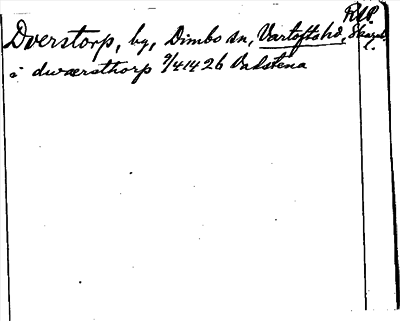 RAP.
Dverstorp, by, Dimbo sn, Vartofta hd, Skarab. l.
i dwærsthorp 9/4 1426 Vadstena